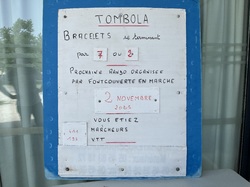 TOMBOLA
BRACELETS se terminant
par 7 ou 2
PROCHAINE RANDO ORGANISEE
PAR FONTCOUVERTE EN MARCHE
2 NOVEMBRE
VOUS ETIEZ
MARCHEURS
VTT